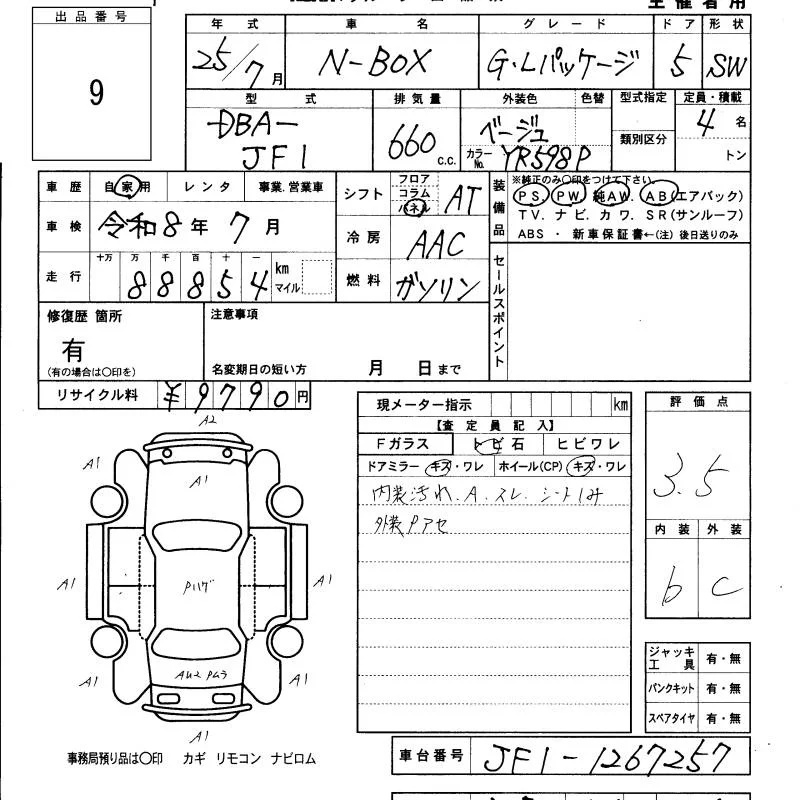 出品番号
9
主催者用
年式 車名 グレード ドア 形状
25/7月 N-BOX G・Lパッケージ 5 SW
型式 排気量 外装色 色替 型式指定 定員・積載
DBA-
JF1
660 c.c.
ベージュ
カラーNo. YR598P
類別区分
4名
トン
車歴 自家用 レンタ 事業.営業車
車検 令和8年7月
走行 十万 万 千 百 十 一
88854 km
マイル
シフト フロア
コラム
パネル
AT
冷房 AAC
燃料 ガソリン
装備品
※純正のみ○印をつけて下さい。
PS. PW. 純AW. AB(エアバック)
TV. ナビ. カワ. SR(サンルーフ)
ABS ・ 新車保証書←(注)後日送りのみ
セールスポイント
修復歴 箇所
有
(有の場合は○印を)
注意事項
名変期日の短い方 月 日まで
リサイクル料 ¥9790円
現メーター指示 km
【査定員記入】
Fガラス トビ石 ヒビワレ
ドアミラー キズ・ワレ ホイール(CP) キズ・ワレ
内装汚れ.A.スレ.シートしみ
外装Pアセ
評価点
3.5
内装 外装
b C
ジャッキ
工具 有・無
パンクキット 有・無
スペアタイヤ 有・無
A2
A1
A1
A1
A1
Pハゲ
A1
A1
AU2 Pムラ
A1
A1
事務局預り品は○印 カギ リモコン ナビロム
車台番号 JF1-1267257